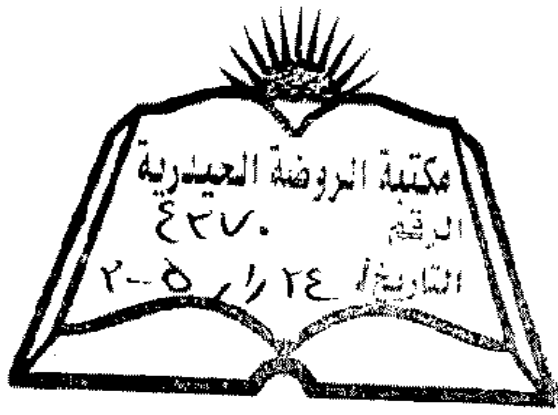 مكتبة الروضة الحيدرية
الرقم ٤٢٧٠
التاريخ ٢٤ /١/ ٢٠٠٥